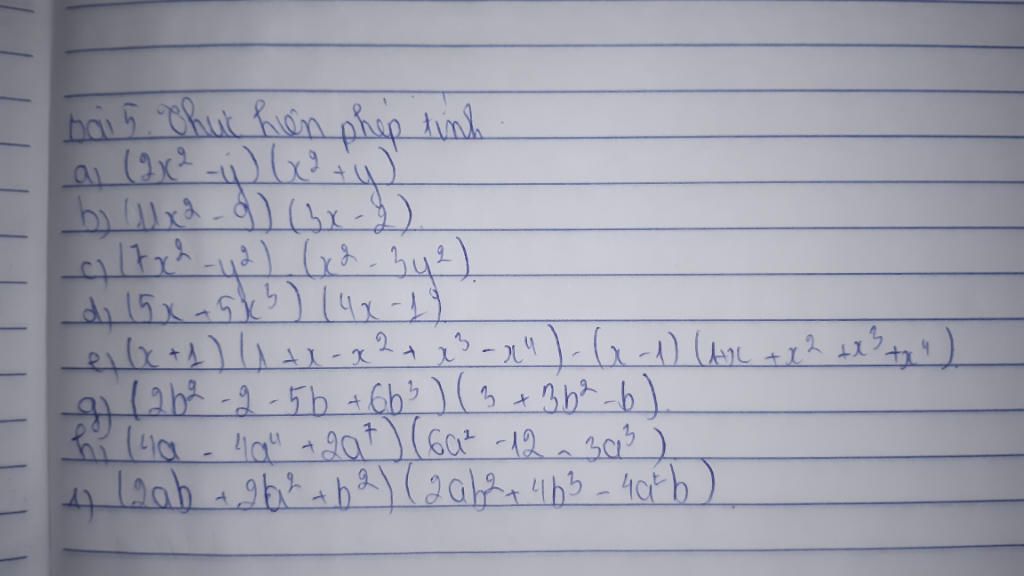 bài 5. Thực hiện phép tính
a) (2x² - y)(x² + y)
b) (11x² - 9)(3x - 2).
c) (7x² - y²).(x² - 3y²).
d) (5x - 5x³)(4x - 1)
e) (x + 1)(1 + x - x² + x³ - x⁴) - (x - 1)(1+x + x² + x³ + x⁴).
g) (2b² - 2 - 5b + 6b³)(3 + 3b² - b).
h) (4a - 4a⁴ + 2a⁷)(6a² - 12 - 3a³).
i) (2ab + 2a² + b²)(2ab² + 4b³ - 4a²b).